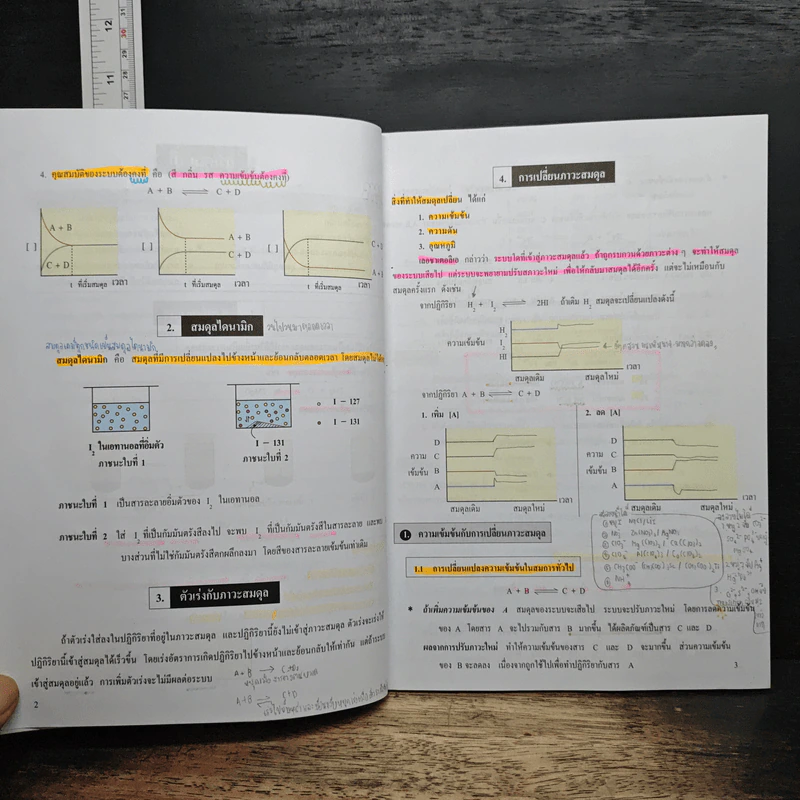 12
31
30
29
28
11
27
4. คุณสมบัติของระบบต้องคงที่ คือ (สี กลิ่น รส ความเข้มข้นต้องคงที่)
A + B ⇌ C + D
[ ]
A + B
C + D
t ที่เริ่มสมดุล
เวลา
[ ]
A + B
C + D
t ที่เริ่มสมดุล
เวลา
[ ]
t ที่เริ่มสมดุล
เวลา
2. สมดุลไดนามิก
สมดุลไดนามิก คือ สมดุลที่มีการเปลี่ยนแปลงไปข้างหน้าและย้อนกลับตลอดเวลา โดยสมดุลไม่ได้
I – 127
I – 131
I – 131
I₂ ในเอทานอลที่อิ่มตัว
ภาชนะใบที่ 1
ภาชนะใบที่ 2
ภาชนะใบที่ 1 เป็นสารละลายอิ่มตัวของ I₂ ในเอทานอล
ภาชนะใบที่ 2 ใส่ I₂ ที่เป็นกัมมันตรังสีลงไป จะพบ I₂ ที่เป็นกัมมันตรังสีในสารละลาย และพบ
บางส่วนที่ไม่ใช่กัมมันตรังสีตกผลึกลงมา โดยสีของสารละลายเข้มข้นเท่าเดิม
3. ตัวเร่งกับภาวะสมดุล
ถ้าตัวเร่งใส่ลงในปฏิกิริยาที่อยู่ในภาวะสมดุล และปฏิกิริยานี้ยังไม่เข้าสู่ภาวะสมดุล ตัวเร่งจะเร่งให้
ปฏิกิริยานี้เข้าสู่สมดุลได้เร็วขึ้น โดยเร่งอัตราการเกิดปฏิกิริยาไปข้างหน้าและย้อนกลับให้เท่ากัน แต่ถ้าระบบ
เข้าสู่สมดุลอยู่แล้ว การเพิ่มตัวเร่งจะไม่มีผลต่อระบบ
A+B → C+D
A+B ⇌ C+D
2
4. การเปลี่ยนภาวะสมดุล
สิ่งที่ทำให้สมดุลเปลี่ยน ได้แก่
1. ความเข้มข้น
2. ความดัน
3. อุณหภูมิ
เลอชาเตอลิเอ กล่าวว่า ระบบใดที่เข้าสู่ภาวะสมดุลแล้ว ถ้าถูกรบกวนด้วยภาวะต่าง ๆ จะทำให้สมดุล
ของระบบเสียไป แต่ระบบจะพยายามปรับสภาวะใหม่ เพื่อให้กลับมาสมดุลได้อีกครั้ง แต่จะไม่เหมือนกับ
สมดุลครั้งแรก ดังเช่น
จากปฏิกิริยา H₂ + I₂ ⇌ 2HI ถ้าเติม H₂ สมดุลจะเปลี่ยนแปลงดังนี้
ความเข้มข้น
H₂
I₂
HI
เวลา
สมดุลเดิม สมดุลใหม่
จากปฏิกิริยา A + B ⇌ C + D
1. เพิ่ม [A]
2. ลด [A]
ความเข้มข้น
D
C
B
A
เวลา
สมดุลเดิม สมดุลใหม่
ความเข้มข้น
D
C
B
A
เวลา
สมดุลเดิม สมดุลใหม่
1. ความเข้มข้นกับการเปลี่ยนภาวะสมดุล
1.1 การเปลี่ยนแปลงความเข้มข้นในสมการทั่วไป
A + B ⇌ C + D
* ถ้าเพิ่มความเข้มข้นของ A สมดุลของระบบจะเสียไป ระบบจะปรับภาวะใหม่ โดยการลดความเข้มข้น
ของ A โดยสาร A จะไปรวมกับสาร B มากขึ้น ได้ผลิตภัณฑ์เป็นสาร C และ D
ผลจากการปรับภาวะใหม่ ทำให้ความเข้มข้นของสาร C และ D จะมากขึ้น ส่วนความเข้มข้น
ของ B จะลดลง เนื่องจากถูกใช้ไปเพื่อทำปฏิกิริยากับสาร A
3